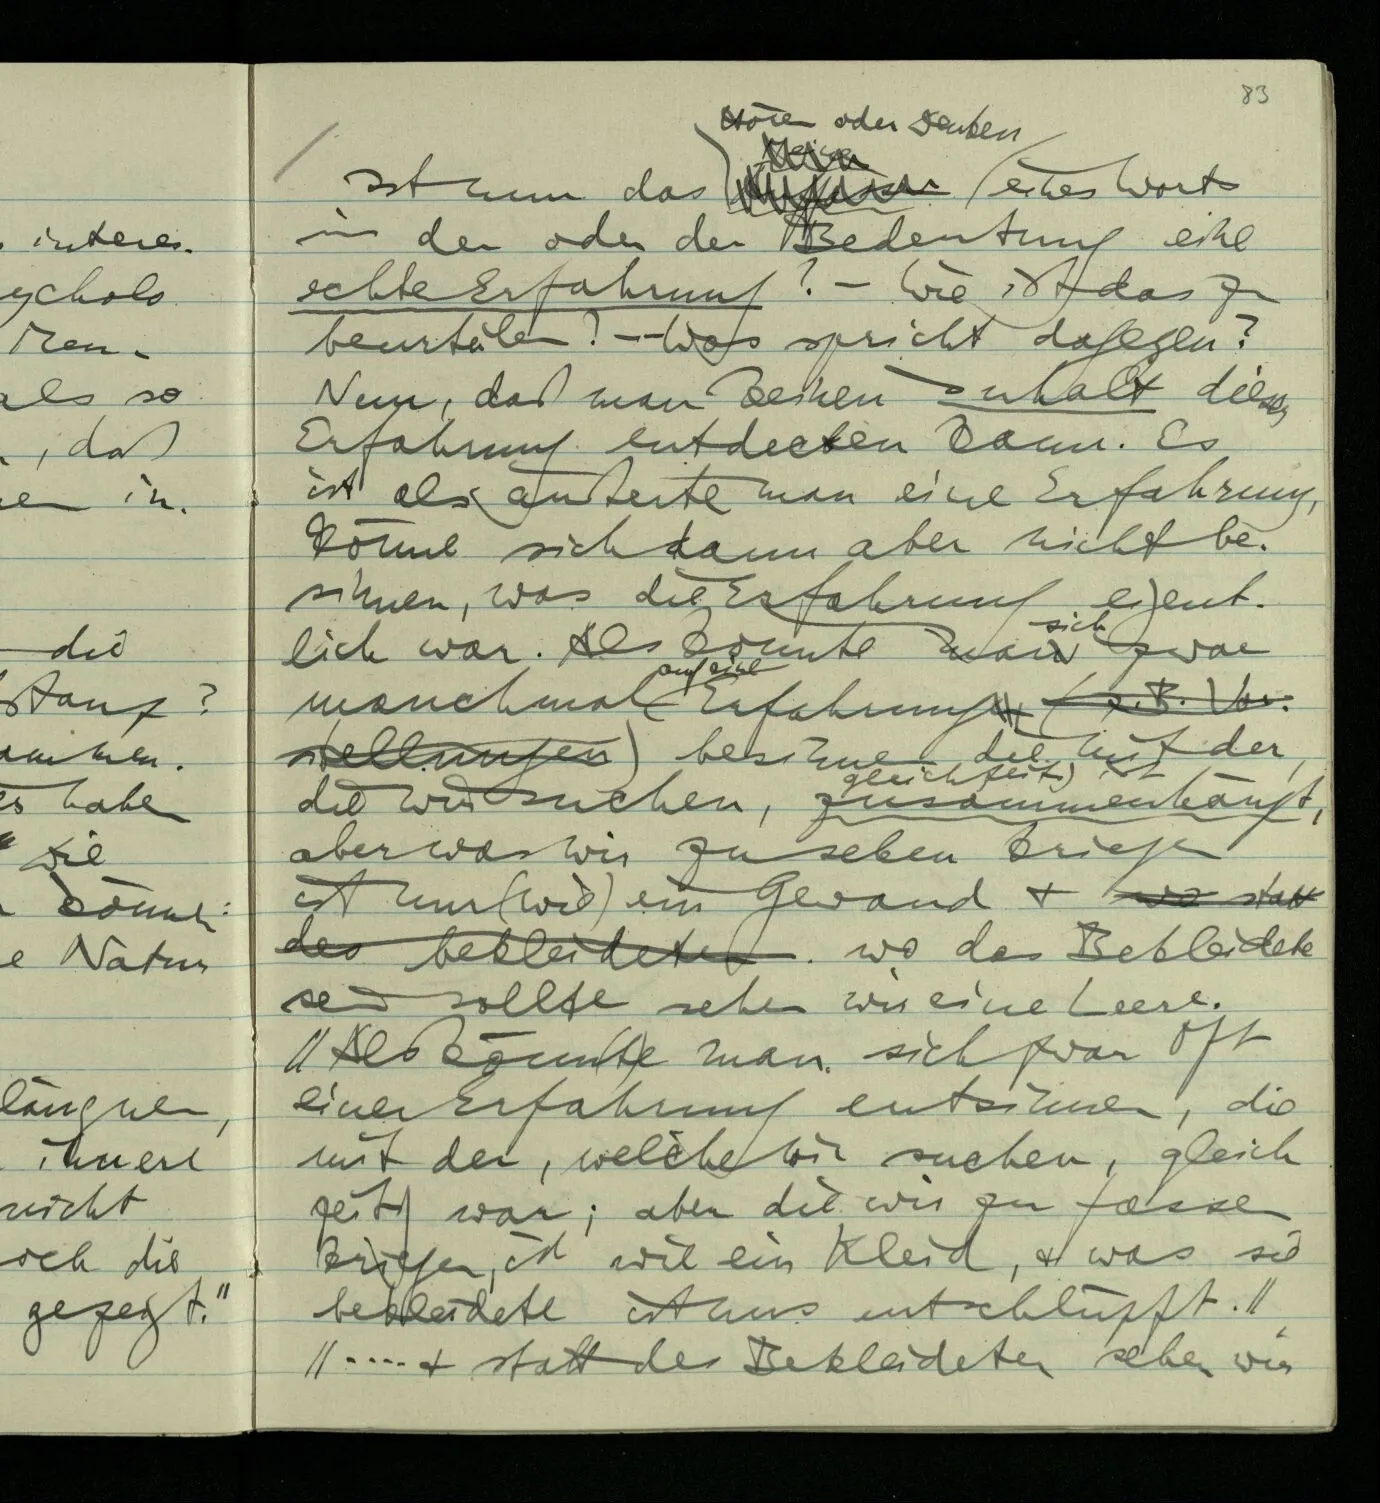 83
Hören oder Denken
Ist nun das eines Worts
in der oder der Bedeutung eine
echte Erfahrung? – Wie ist das zu
beurteilen? – Was spricht dagegen?
Nun, daß man keinen Inhalt dieser
Erfahrung entdecken kann. Es
ist als äußerte man eine Erfahrung,
könne sich dann aber nicht be-
sinnen, was die Erfahrung eigent-
lich war. Als könnte man sich zwar
manchmal auf eine Erfahrung (z.B. Vor-
stellungen) besinnen die mit der,
die wir suchen, gleichzeitig ist
zusammenhängt,
aber was wir zu sehen kriegen
ist nur (wie) ein Gewand & wo statt
des bekleideten. wo das Bekleidete
sein sollte sehen wir eine Leere.
// Als könnte man sich zwar oft
einer Erfahrung entsinnen, die
mit der, welche wir suchen, gleich
zeitig war; aber die wir zu fassen
kriegen, ist wie ein Kleid, & was sie
bekleidete ist uns entschlüpft. //
// .... & statt des Bekleideten sehen wir
interes-
ycholo
Men-
als so
, daß
en in.
die
stanz?
ommen.
es habe
wie
könne:
e Natur
längnen,
innere
nicht
och die
gezeigt."